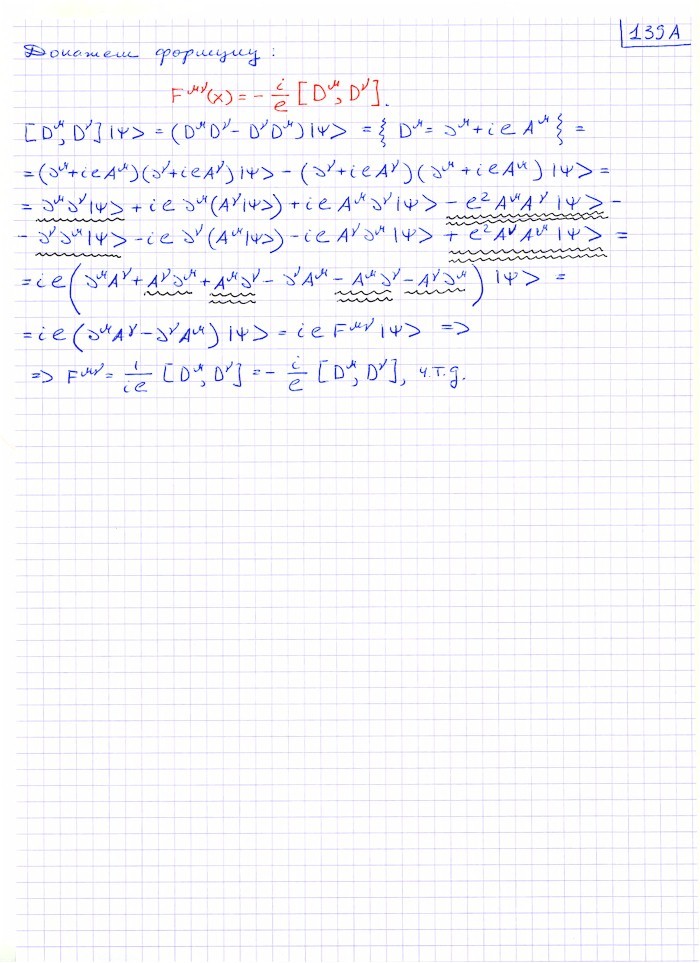 139А
Докажем формулу:
F^{μν}(x) = - i/e [D^μ, D^ν].
[D^μ, D^ν]|Ψ> = (D^μ D^ν - D^ν D^μ)|Ψ> = { D^μ = ∂^μ + ieA^μ } =
= (∂^μ + ieA^μ)(∂^ν + ieA^ν)|Ψ> - (∂^ν + ieA^ν)(∂^μ + ieA^μ)|Ψ> =
= ∂^μ ∂^ν|Ψ> + ie∂^μ(A^ν|Ψ>) + ieA^μ ∂^ν|Ψ> - e² A^μ A^ν|Ψ> -
- ∂^ν ∂^μ|Ψ> - ie∂^ν(A^μ|Ψ>) - ieA^ν ∂^μ|Ψ> + e² A^ν A^μ|Ψ> =
= ie(∂^μ A^ν + A^ν ∂^μ + A^μ ∂^ν - ∂^ν A^μ - A^μ ∂^ν - A^ν ∂^μ)|Ψ> =
= ie(∂^μ A^ν - ∂^ν A^μ)|Ψ> = ieF^{μν}|Ψ> =>
=> F^{μν} = 1/ie [D^μ, D^ν] = - i/e [D^μ, D^ν], ч.т.д.